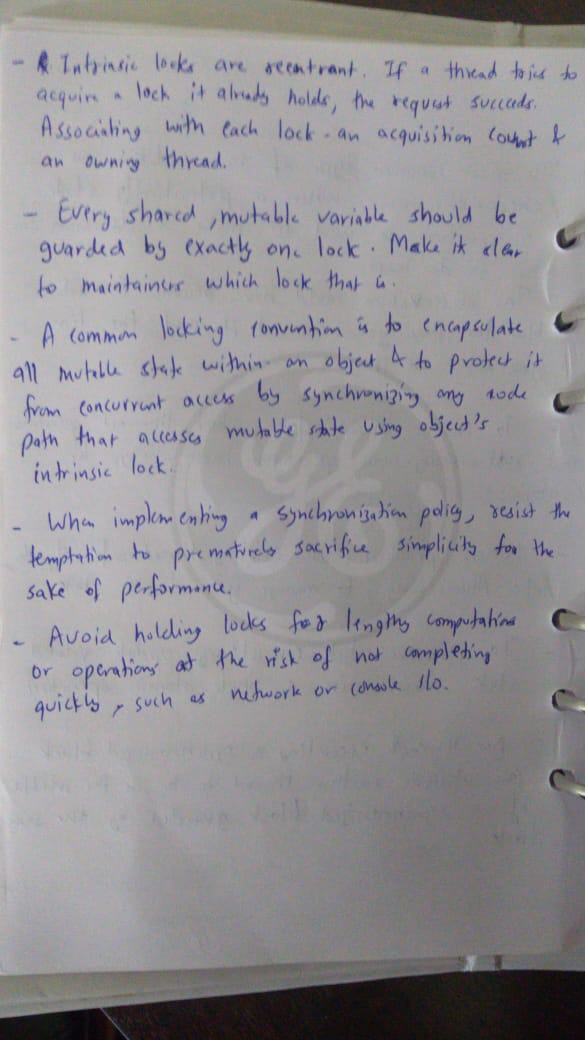 - Intrinsic locks are reentrant. If a thread tries to
acquire a lock it already holds, the request succeeds.
Associating with each lock - an acquisition count &
an owning thread.
- Every shared, mutable variable should be
guarded by exactly one lock. Make it clear
to maintainers which lock that is.
- A common locking convention is to encapsulate
all mutable state within an object & to protect it
from concurrent access by synchronizing any code
path that accesses mutable state using object's
intrinsic lock.
- When implementing a synchronization policy, resist the
temptation to prematurely sacrifice simplicity for the
sake of performance.
- Avoid holding locks for lengthy computations
or operations at the risk of not completing
quickly, such as network or console I/O.